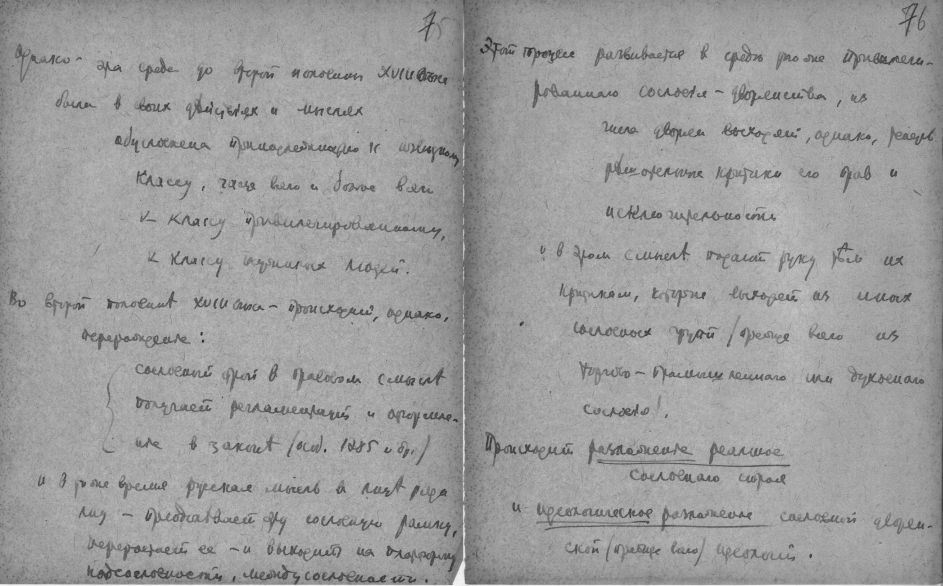 75
Однако – эта среда до второй половины XVIII века
была в своих действиях и мыслях
обусловлена принадлежностью к
классу, чаще всего и более всего
к классу привилегированному,
к классу служилых людей.
Во второй половинѣ XVIII века – происходит, однако,
перерождение:
сословный строй в правовом смыслѣ
получает регламентацию и оформле-
ние в законѣ (особ. 1785 и др.)
и в то же время русская мысль в лицѣ ряда
лиц – преодолевает эту сословную рамку,
перерастает ее – и выходит на платформу
надсословности, междусословности.
76
Этот процесс развивается в среде уже привилеги-
рованнаго сословия – дворянства, из
числа дворян выходят, однако,
решительные критики его прав и
исключительности
и в этом смыслѣ подают руку тѣм их
критикам, которые выходят из иных
сословных групп (прежде всего из
торгово-промышленнаго или духовнаго
сословия).
Происходит разложение реальное
сословнаго строя
и идеологическое разложение сословной дворян-
ской (прежде всего) идеологии.